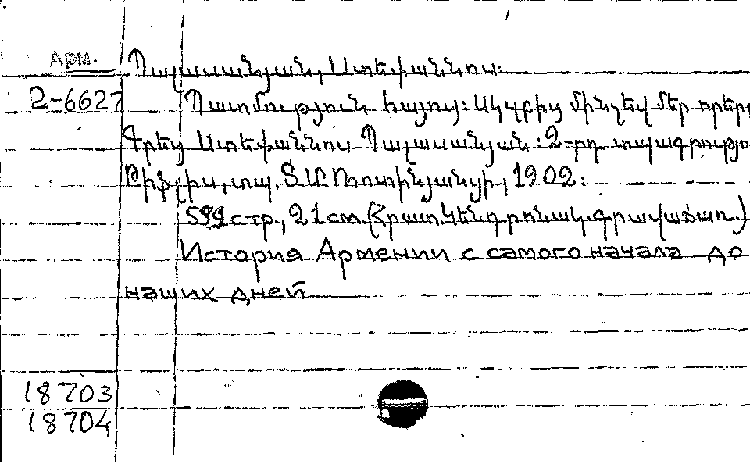 Арм.
Պալասանյան, Ստեփաննոս.
2-6627
Պատմություն հայոց: Սկզբից մինչև մեր օրերը
Գրեց Ստեփաննոս Պալասանյան: 2-րդ տպագրությո
Թիֆլիս, տպ. Տ. Մ. Ռոտինյանցի, 1902:
599 стр., 21 см. (Հրատ. Կենդրոնական գրավաճառ.)
История Армении с самого начала до
наших дней
18703
18704